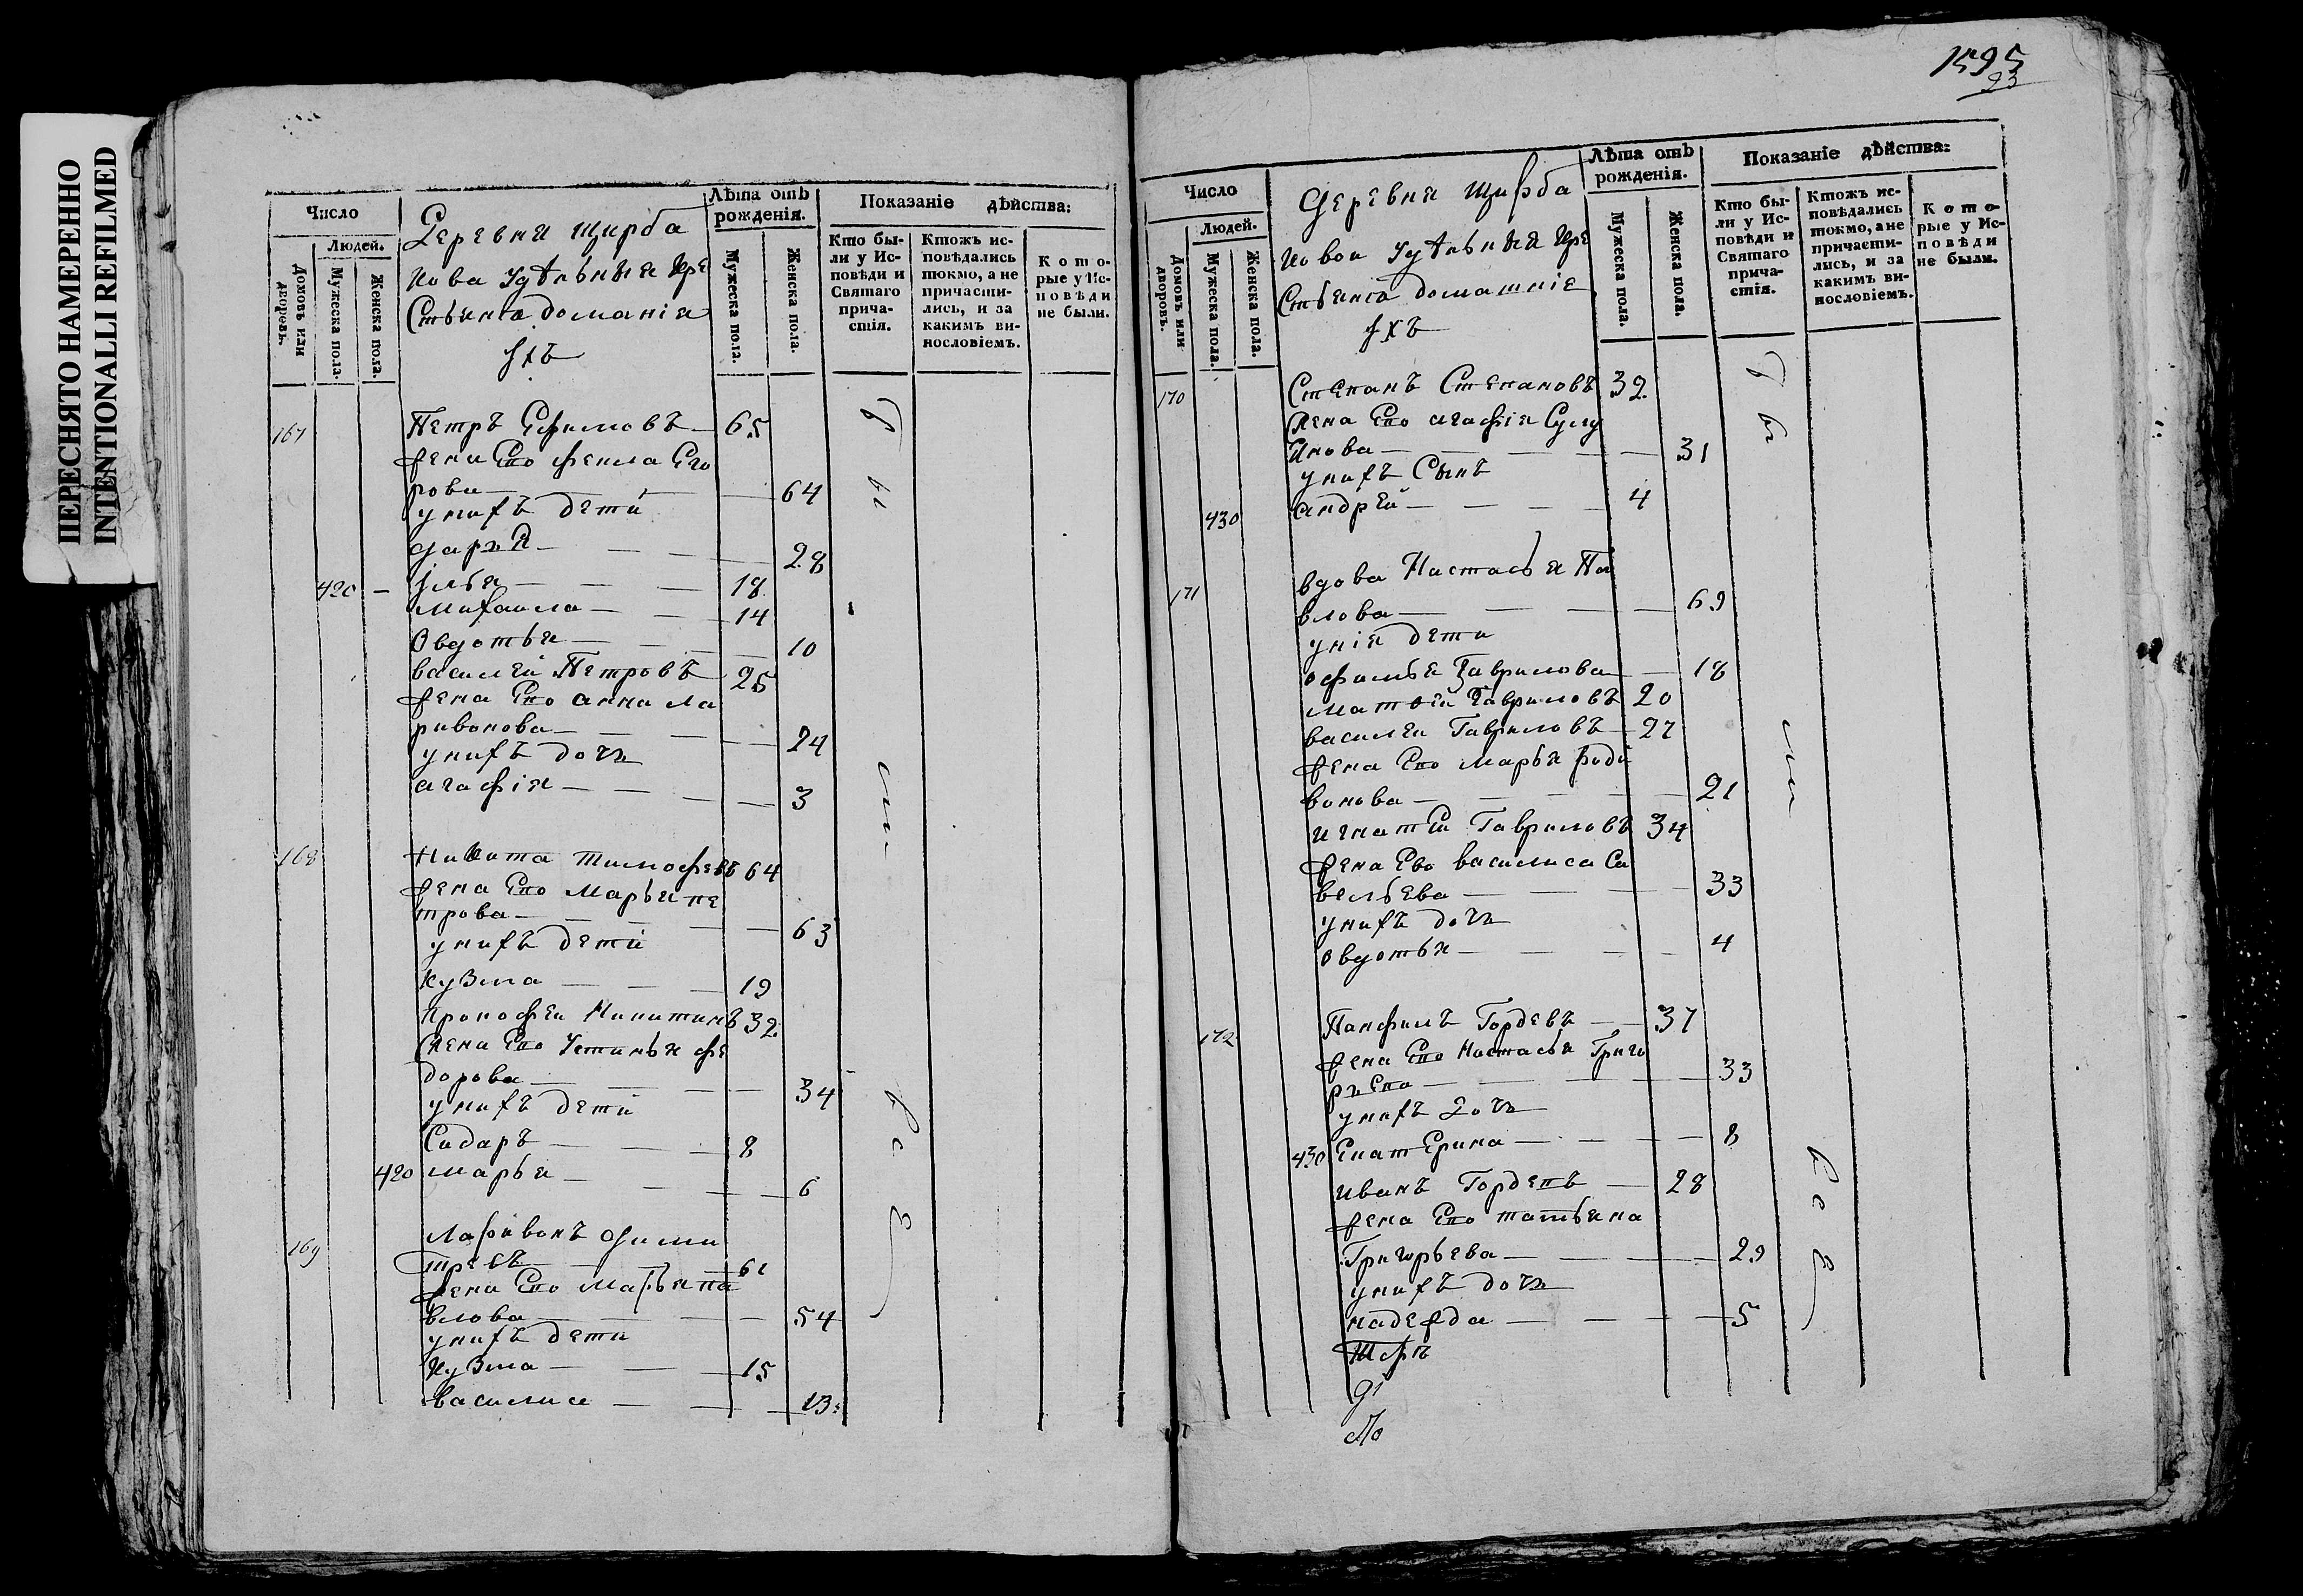 ПЕРЕСНЯТО НАМЕРЕННО
INTENTIONALLI REFILMED
Число
Людей.
Домовъ или дворовъ.
Мужеска пола.
Женска пола.
Деревни щирба
кова Удѣльныя кре
стьяня домания
ихъ
Лѣта отъ рожденія.
Мужеска пола.
Женска пола.
Показаніе дѣйства:
Кто бы-
ли у Ис-
повѣди и
Святаго
прича-
стія.
Ктожъ ис-
повѣдались
токмо, а не
причасти-
лись, и за
какимъ ви-
нословіемъ.
Кото-
рые у Ис-
повѣди
не были.
167 Петръ Ефимовъ 65
жена Его фекла Его
рова 64
унихъ дети
дарья 28
420 Илья 18
михаила 14
Овдотья 10
василей Петровъ 25
жена Его анна ла
ривонова 24
унихъ дочь
агафія 3
168 Никита тимофевъ 64
жена Его Марья пе
трова 63
унихъ дети
кузма 19
прокофеи Никитинъ 32
жена Его Устинья фе
дорова 34
унихъ дети
Сидаръ 8
420 марья 6
169 Ларивонъ дими
тревъ 61
жена Его Марья па
влова 54
унихъ дети
кузма 15
василиса 13
1595
23
Число
Людей.
Домовъ или дворовъ.
Мужеска пола.
Женска пола.
Деревни Щирба
ковои Удѣльныя кре
стьяня домашніе
ихъ
Лѣта отъ
рожденія.
Мужеска пола.
Женска пола.
Показаніе дѣйства:
Кто бы-
ли у Ис-
повѣди и
Святаго
прича-
стія.
Ктожъ ис-
повѣдались
токмо, а не
причасти-
лись, и за
какимъ ви-
нословіемъ.
Кото-
рые у Ис-
повѣди
не были.
170 Степанъ Степановъ 32
жена Его агафія
31
унихъ Сынъ
430 андрей 4
171 вдова Настасья Па
влова 69
унія дети
офимья Гаврилова 18
матвей Гавриловъ 20
василеи Гавриловъ 27
жена Его марья роди
вонова 21
игнатей Гавриловъ 34
жена Ево василиса са
вельева 33
унихъ дочь
овдотья 4
172 Панфилъ Гордевъ 37
жена Его Настасья Григо
рьева 33
унихъ дочь
430 Екатерина 8
иванъ Гордевъ 28
жена Его татьяна
Григорьева 29
унихъ дочь
надежда 5